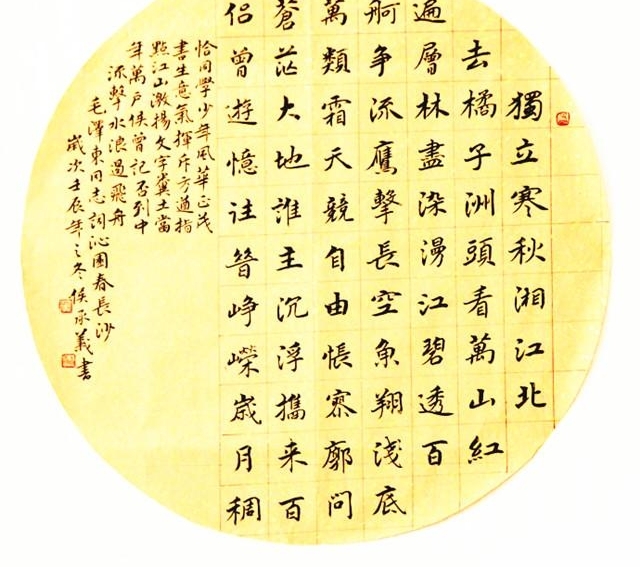 獨立寒秋湘江北
去橘子洲頭看萬山紅
遍層林盡染漫江碧透百
舸争流鷹擊長空魚翔淺底
萬類霜天競自由悵寥廓問
蒼茫大地誰主沉浮攜来百
侣曾遊憶往昔崢嶸歲月稠
恰同學少年風華正茂
書生意氣揮斥方遒指
點江山激揚文字糞土當
年萬户侯曾記否到中
流擊水浪遏飛舟
毛澤東同志詞沁園春長沙
歲次壬辰年之冬侯承義書